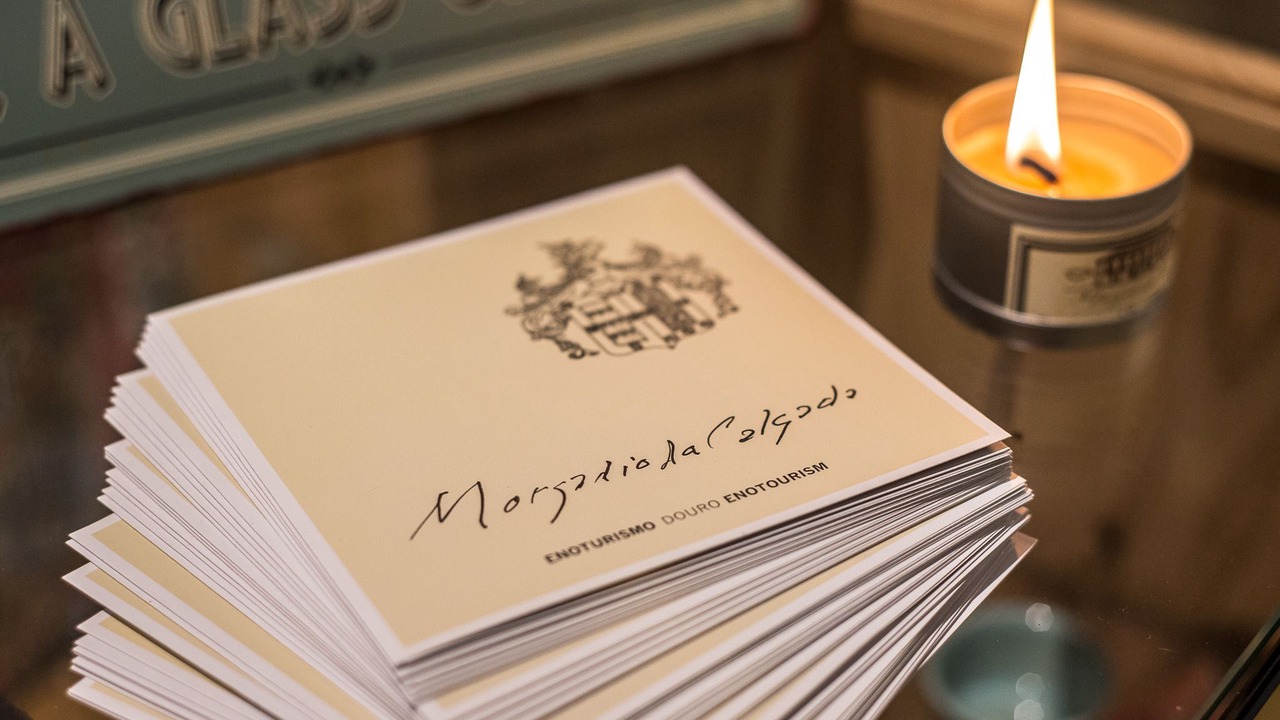 A GLASS
Morgadio da Calçada
ENOTURISMO DOURO ENOTOURISM